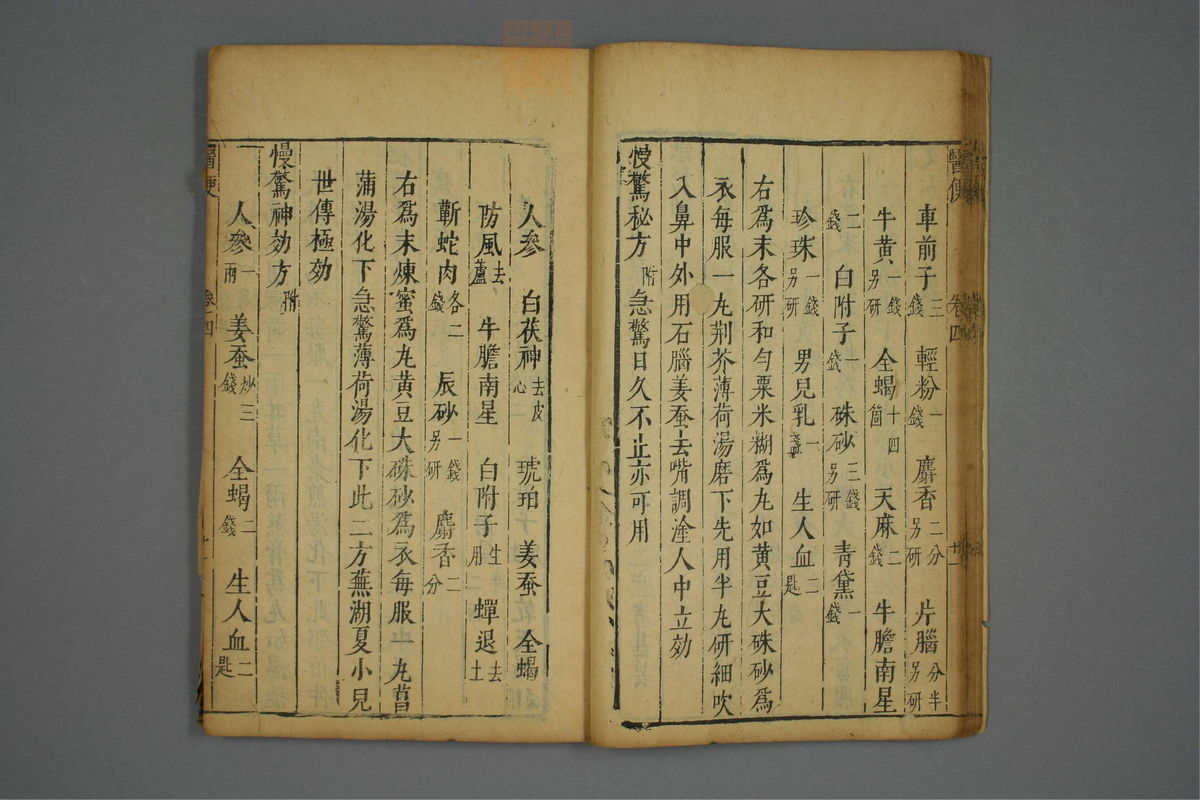 醫便 卷四 十一
車前子三錢 輕粉一錢 麝香二分另研 片腦分半另研
牛黃一錢另研 全蝎十四箇 天麻二錢 牛膽南星
二錢 白附子一錢 硃砂三錢另研 青黛一錢
珍珠一錢另研 男兒乳一 生人血二匙
右爲末各研和勻粟米糊爲丸如黄豆大硃砂爲
衣每服一丸荆芥薄荷湯磨下先用半丸研細吹
入鼻中外用石腦姜蚕去嘴調塗人中立効
慢驚秘方附 急驚日久不止亦可用
人參 白茯神去皮心 琥珀 姜蚕 全蝎
防風去蘆 牛膽南星 白附子生用 蟬退去土
蘄蛇肉各二錢 辰砂一錢另研 麝香二分
右爲末煉蜜爲丸黄豆大硃砂爲衣每服一丸菖
蒲湯化下急驚薄荷湯化下此二方蕪湖夏小兒
世傳極効
慢驚神効方附
人參一兩 姜蚕炒三錢 全蝎二錢 生人血二匙
醫便 卷四